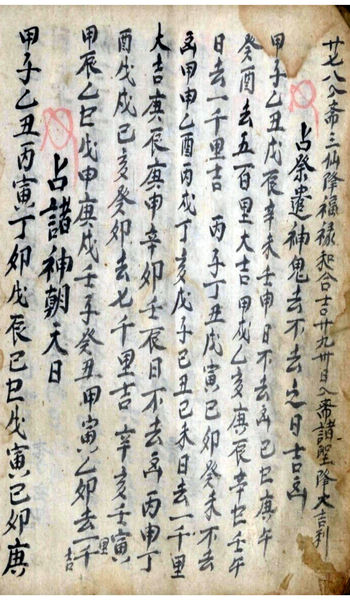 廿七八人斋三仙降福禄和合吉廿九卅日人斋諸聖降大吉利
占祭遣神鬼去不去之日吉凶
甲子乙丑戊辰辛未壬申日不去凶己巳庚午
癸酉去五百里大吉甲戌乙亥庚辰辛巳壬午
日去一千里吉 丙子丁丑戊寅己卯癸未不去
凶甲申乙酉丙戌丁亥戊子己丑己未日去一千里
大吉庚辰庚申辛卯壬辰日不去凶丙申丁
酉戊戌己亥癸卯去七千里吉辛亥壬寅
甲辰乙巳戊申庚戌壬子癸丑甲寅乙卯去一千里吉
占諸神朝天日
甲子乙丑丙寅丁卯戊辰己巳戊寅己卯庚